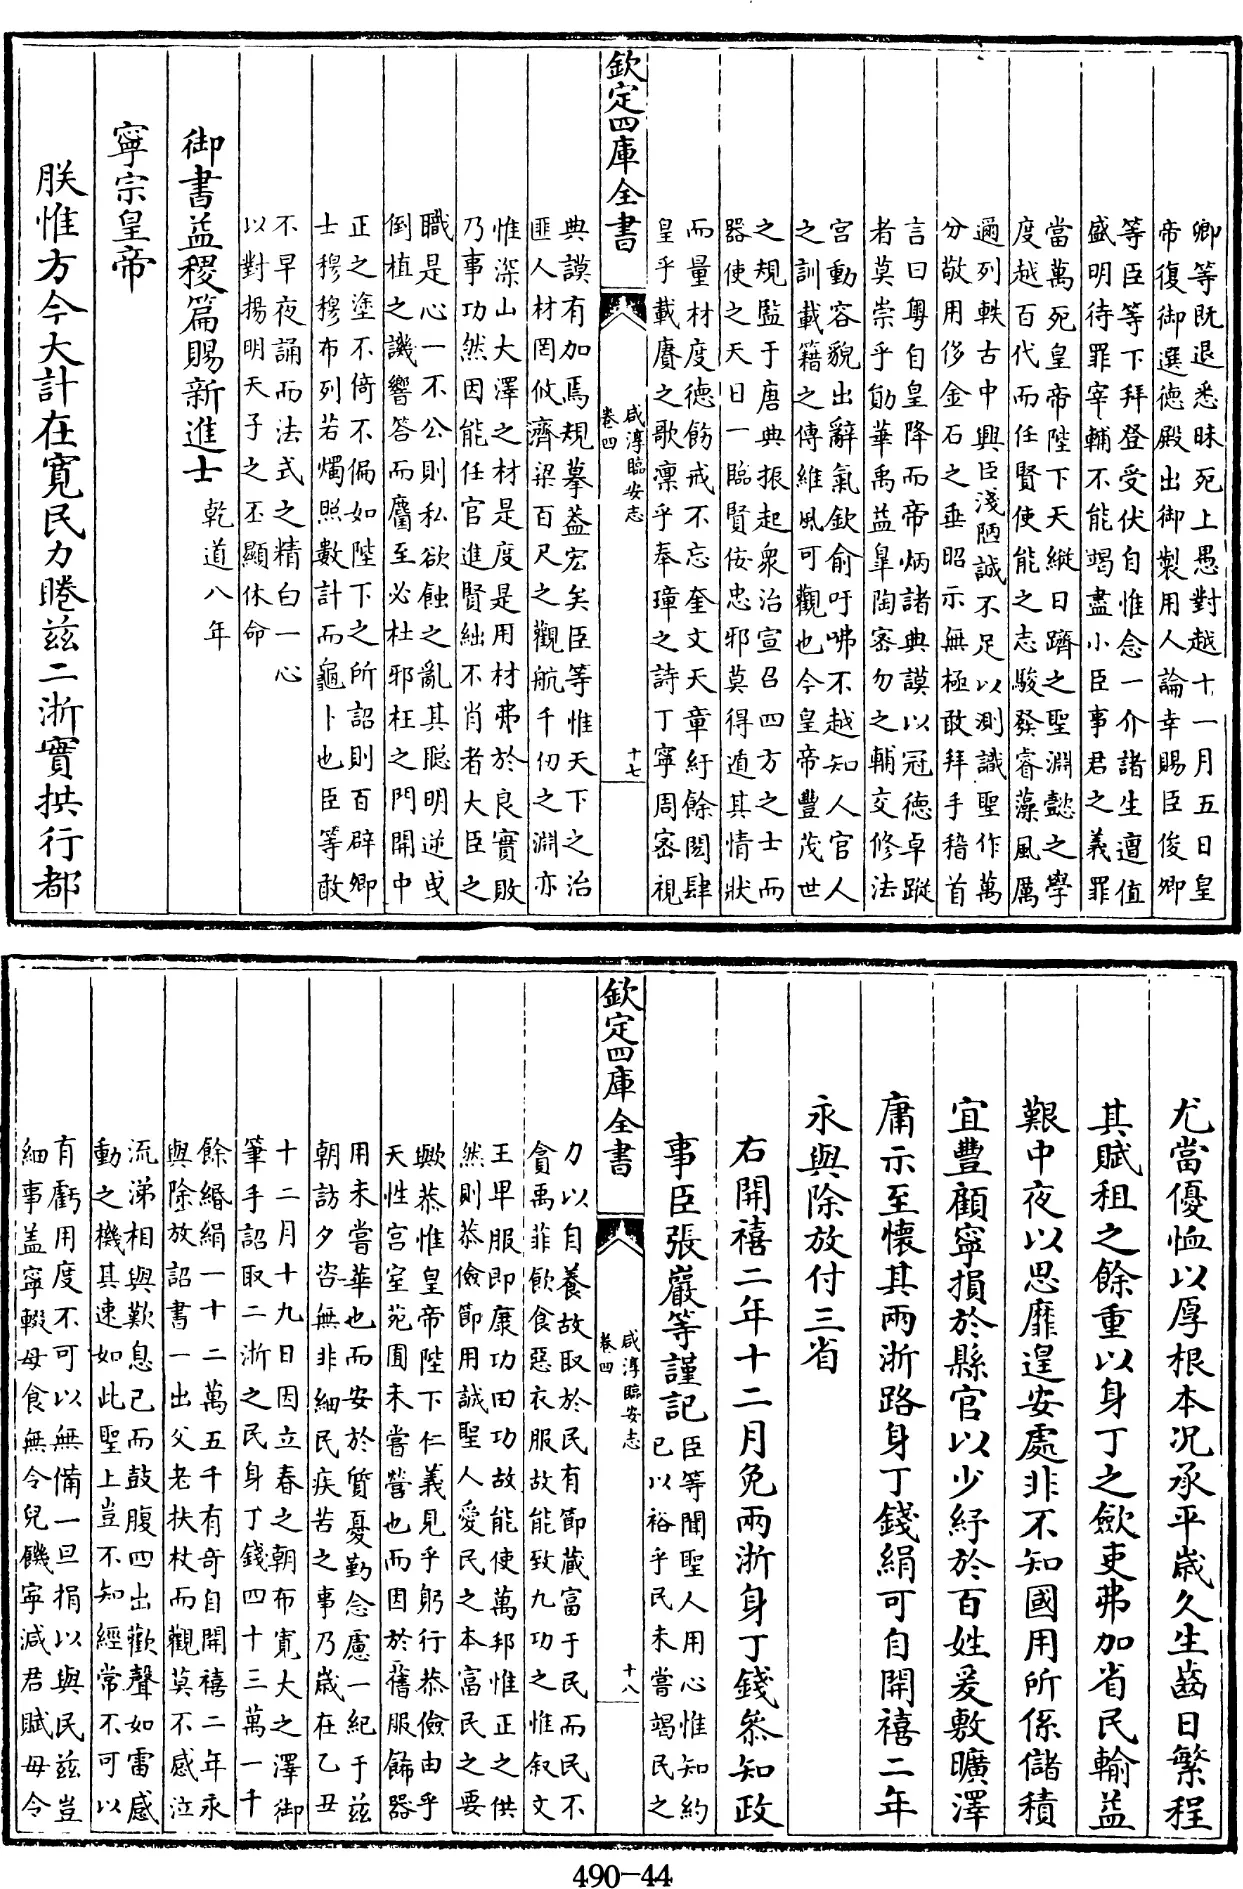 卿等既退悉昧死上愚對越十一月五日皇
帝復御選德殿出御製用人論幸賜臣俊卿
等臣等下拜登受伏自惟念一介諸生遭值
盛明待罪宰輔不能竭盡小臣事君之義罪
當萬死皇帝陛下天縱日躋之聖淵懿之學
度越百代而任賢使能之志駿發睿藻風厲
邇列軼古中興臣淺陋誠不足以測識聖作萬
分敬用侈金石之垂昭示無極敢拜手稽首
言曰粤自皇降而帝炳諸典謨以冠德卓蹤
者莫崇乎勛華禹益臯陶密勿之輔交修法
宮動容貌出辭氣欽俞吁咈不越知人官人
之訓載籍之傳維風可觀也今皇帝豐茂世
之規監于唐典振起衆治宣召四方之士而
器使之天日一臨賢佞忠邪莫得遁其情狀
而量材度德飭戒不忘奎文天章紆餘閎肆
皇乎載賡之歌凜乎奉璋之詩丁寧周密視
欽定四庫全書
咸淳臨安志
卷四
十七
典謨有加焉規摹葢宏矣臣等惟天下之治
匪人材罔攸濟梁百尺之觀航千仞之淵亦
惟深山大澤之材是度是用材弗於良實敗
乃事功然因能任官進賢絀不肖者大臣之
職是心一不公則私欲蝕之亂其聰明逆曳
倒植之譏響答而麕至必杜邪枉之門開中
正之塗不倚不偏如陛下之所詔則百辟卿
士穆穆布列若燭照數計而龜卜也臣等敢
不早夜誦而法式之精白一心
以對揚明天子之丕顯休命
御書益稷篇賜新進士 乾道八年
寧宗皇帝
朕惟方今大計在寛民力睠兹二浙實拱行都
尤當優恤以厚根本况承平歲久生齒日繁程
其賦租之餘重以身丁之歛吏弗加省民輸益
艱中夜以思靡遑安處非不知國用所係儲積
宜豐顧寧損於縣官以少紓於百姓爰敷曠澤
庸示至懷其兩浙路身丁錢絹可自開禧二年
永與除放付三省
右開禧二年十二月免兩浙身丁錢叅知政
事臣張巖等謹記 臣等聞聖人用心惟知約
已以裕乎民未嘗竭民之
欽定四庫全書
咸淳臨安志
卷四
十八
力以自養故取於民有節藏富于民而民不
貪禹菲飲食惡衣服故能致九功之惟叙文
王卑服即康功田功故能使萬邦惟正之供
然則恭儉節用誠聖人愛民之本富民之要
歟恭惟皇帝陛下仁義見乎躬行恭儉由乎
天性宮室苑囿未嘗營也而因於舊服餙器
用未嘗華也而安於質憂勤念慮一紀于兹
朝訪夕咨無非細民疾苦之事乃歲在乙丑
十二月十九日因立春之朝布寛大之澤御
筆手詔取二浙之民身丁錢四十三萬一千
餘緡絹一十二萬五千有奇自開禧二年永
與除放詔書一出父老扶杖而觀莫不感泣
流涕相與歎息已而鼓腹四出歡聲如雷感
動之機其速如此聖上豈不知經常不可以
有虧用度不可以無備一旦捐以與民兹豈
細事盖寧輟母食無令兒饑寧減君賦毋令
490-44